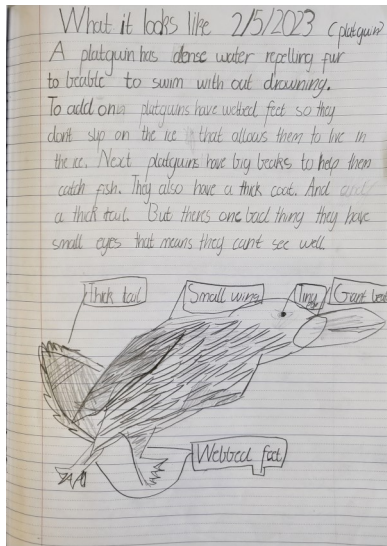 What it looks like 2/5/2023 (platguin)
A platguin has dense water repelling fur
to beable to swim with out drowning.
To add on platguins have webbed feet so they
dont slip on the ice that allows them to live in
the ice. Next platguins have big beaks to help them
catch fish. They also have a thick coat. And
a thick tail. But theres one bad thing they have
small eyes that means they cant see well.
Thick tail
Small wing
Tiny eye
Giant beak
Webbed feet